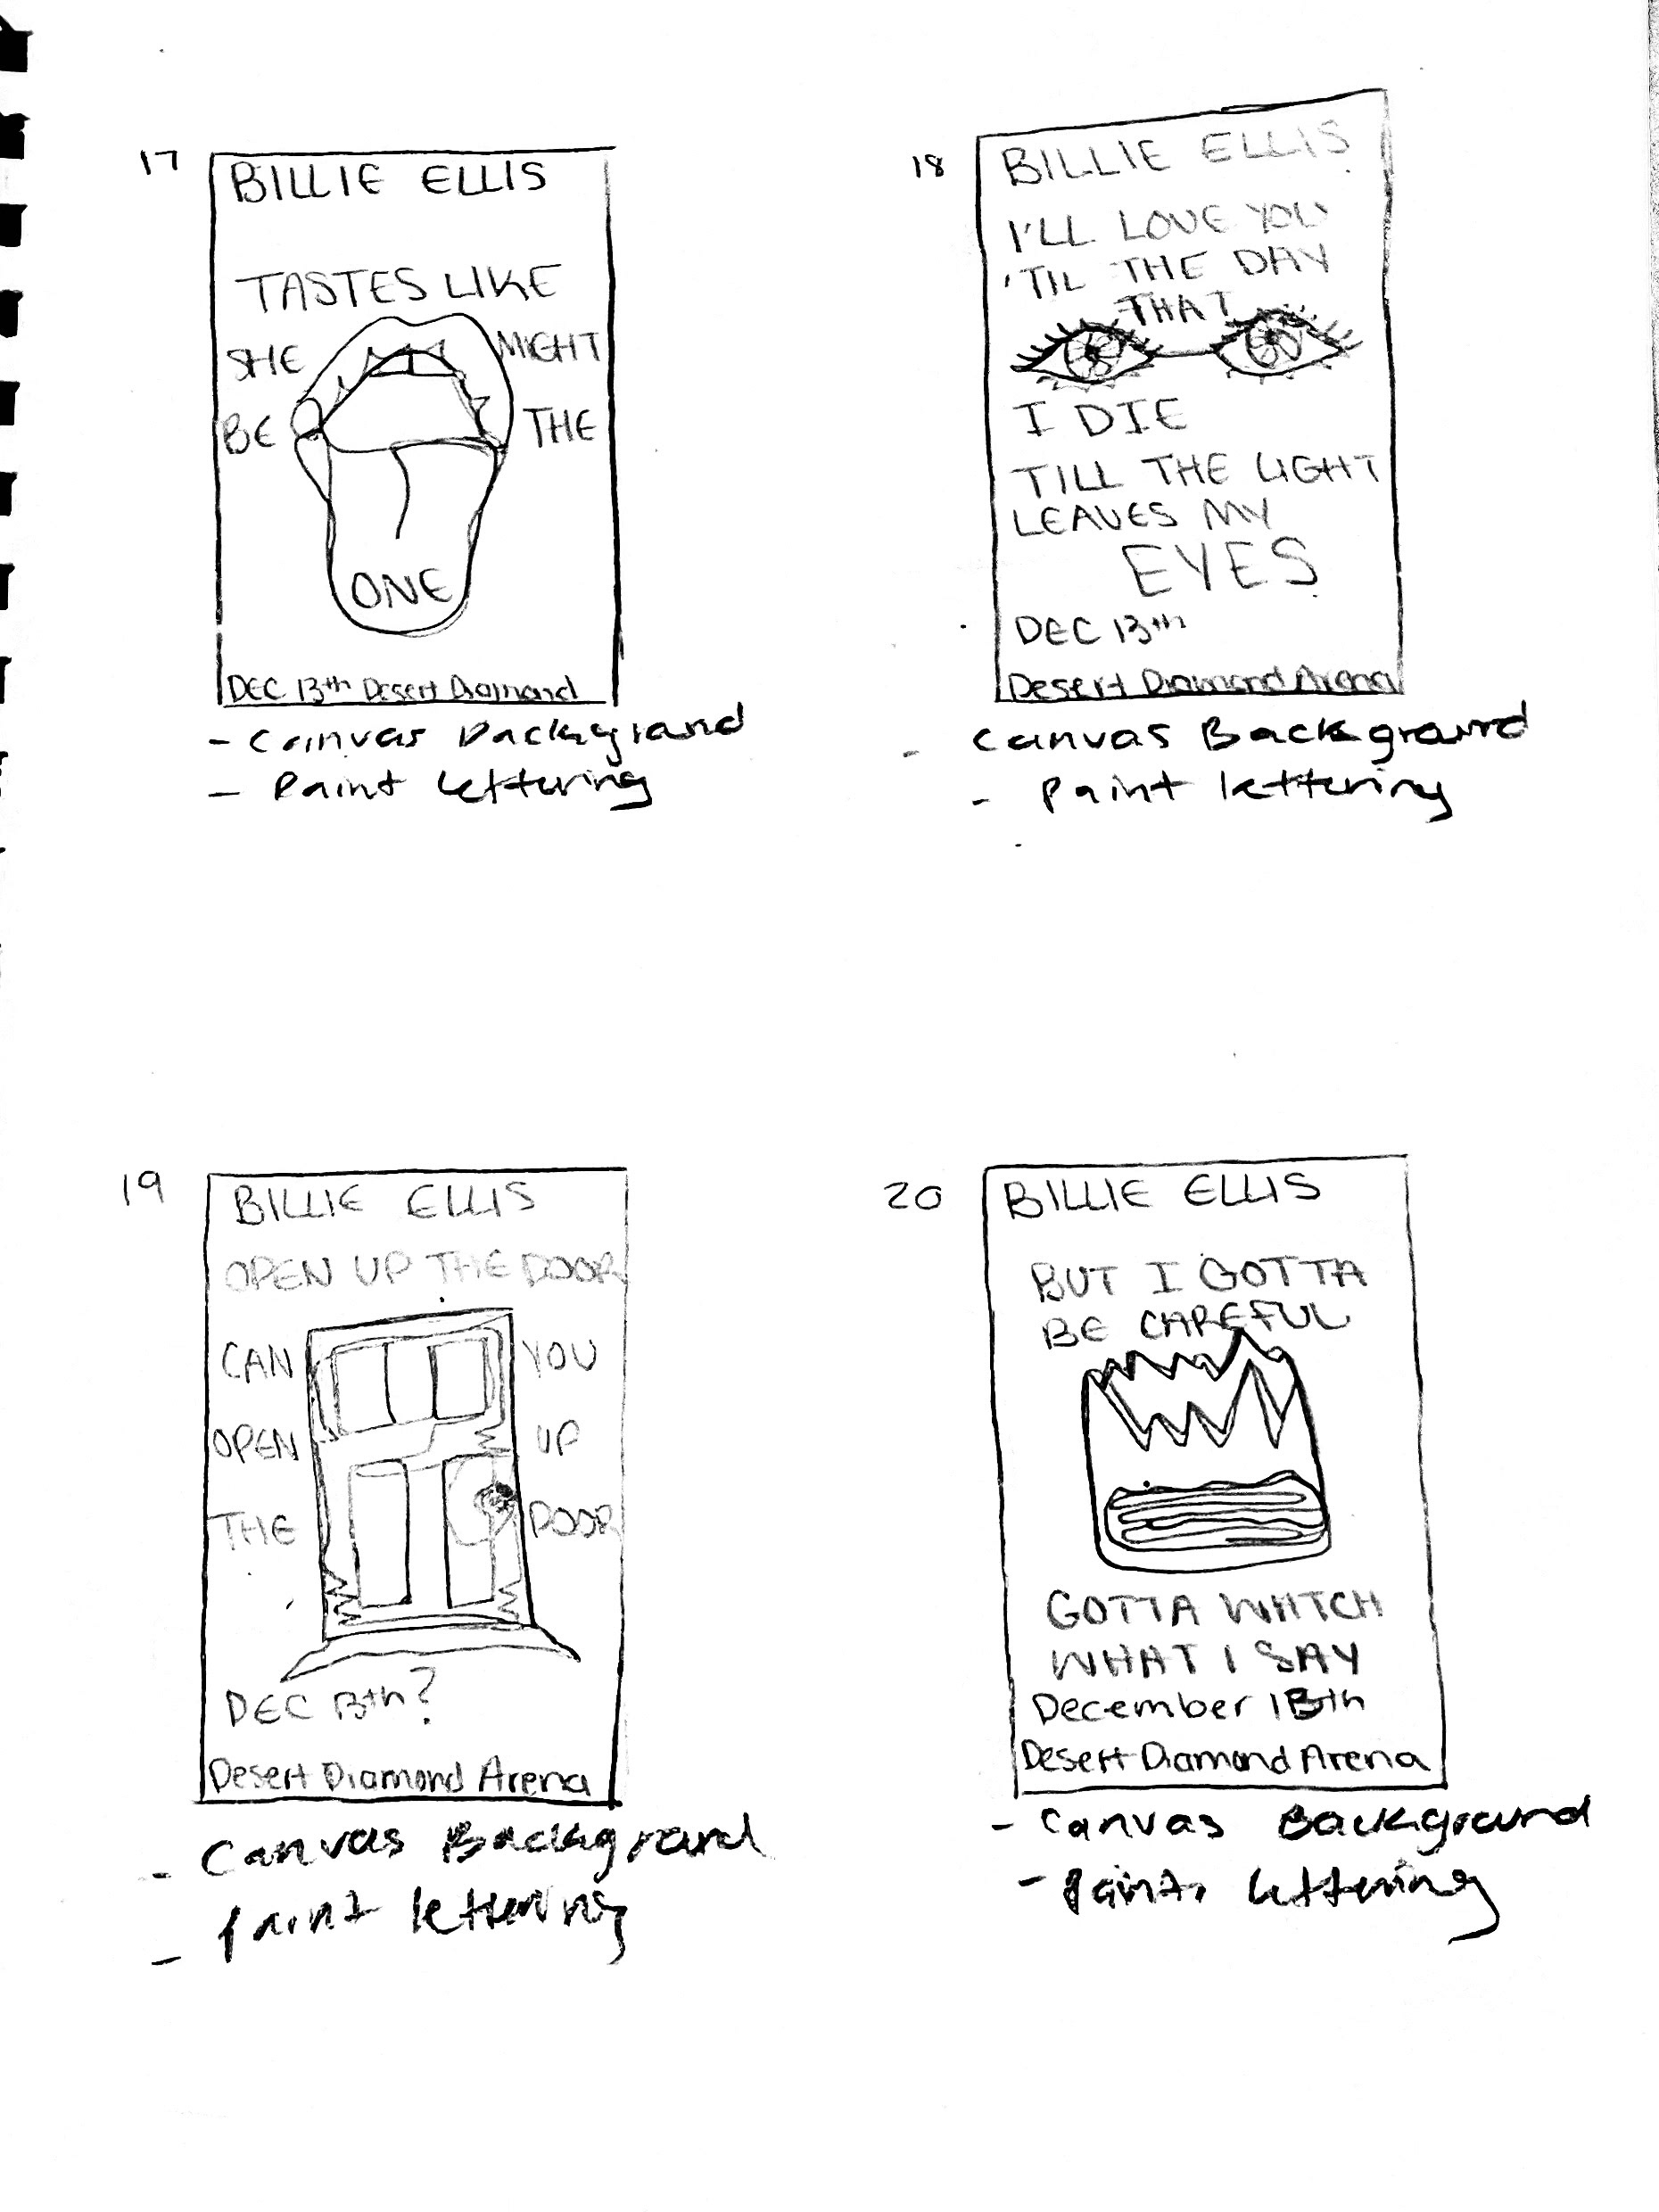 17
BILLIE ELLIS
TASTES LIKE
SHE MIGHT
BE THE
ONE
DEC 13th Desert Diamond
- Canvas Background
- Paint lettering
18
BILLIE ELLIS
I'LL LOVE YOU
'TIL THE DAY
THAT
I DIE
TILL THE LIGHT
LEAVES MY
EYES
DEC 13th
Desert Diamond Arena
- Canvas Background
- Paint lettering
19
BILLIE ELLIS
OPEN UP THE DOOR
CAN YOU
OPEN UP
THE DOOR
DEC 13th?
Desert Diamond Arena
- Canvas Background
- Paint lettering
20
BILLIE ELLIS
BUT I GOTTA
BE CAREFUL
GOTTA WATCH
WHAT I SAY
December 13th
Desert Diamond Arena
- Canvas Background
- Paint lettering